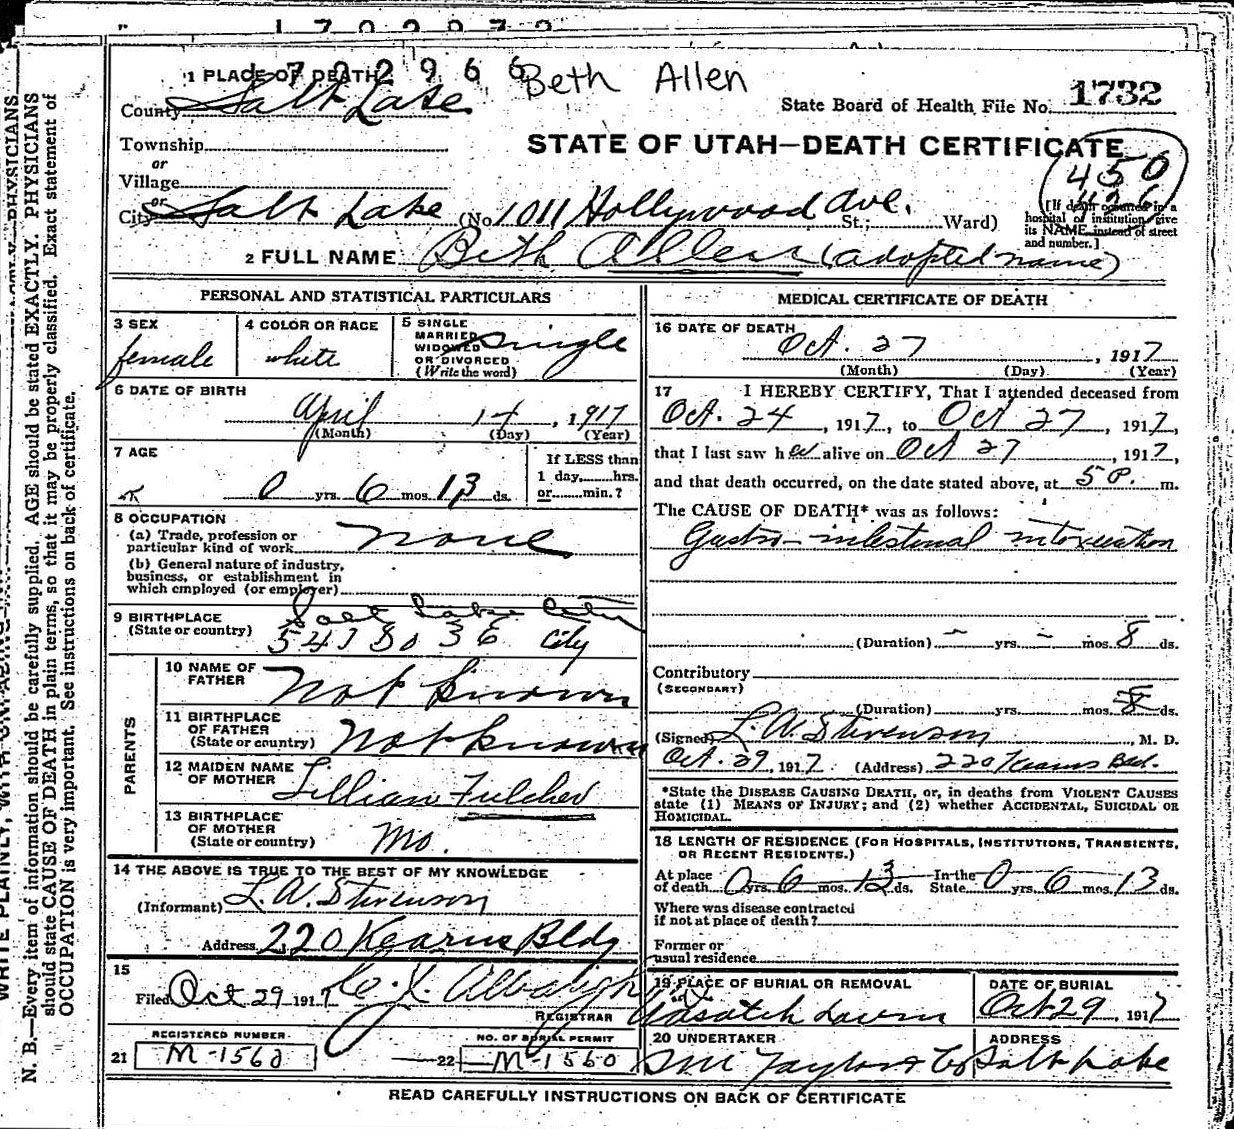 1702972
1702966 Beth Allen
1 PLACE OF DEATH
State Board of Health File No. 1732
County Salt Lake
Township
STATE OF UTAH—DEATH CERTIFICATE
or
Village
450
or
City Salt Lake (No. 1011 Hollywood Ave. St.; Ward)
[If death occurred in a
hospital or institution give
its NAME instead of street
and number.]
2 FULL NAME Beth Allen (adopted name)
PERSONAL AND STATISTICAL PARTICULARS
3 SEX
female
4 COLOR OR RACE
white
5 SINGLE
MARRIED
WIDOWED
OR DIVORCED
(Write the word)
single
6 DATE OF BIRTH
April 14, 1917
(Month) (Day) (Year)
7 AGE
0 yrs. 6 mos. 13 ds.
If LESS than
1 day, hrs.
or min.?
8 OCCUPATION
(a) Trade, profession or
particular kind of work
None
(b) General nature of industry,
business, or establishment in
which employed (or employer)
9 BIRTHPLACE
(State or country)
Salt Lake City
City
PARENTS
10 NAME OF
FATHER
Not known
11 BIRTHPLACE
OF FATHER
(State or country)
Not known
12 MAIDEN NAME
OF MOTHER
Lillian Fulcher
13 BIRTHPLACE
OF MOTHER
(State or country)
Mo.
14 THE ABOVE IS TRUE TO THE BEST OF MY KNOWLEDGE
(Informant) L. W. Stevenson
Address 220 Kearns Bldg
15
Filed Oct 29 1917
REGISTRAR
REGISTERED NUMBER.
21 M-1560
NO. OF BURIAL PERMIT
22 M-1560
MEDICAL CERTIFICATE OF DEATH
16 DATE OF DEATH
Oct. 27, 1917
(Month) (Day) (Year)
17 I HEREBY CERTIFY, That I attended deceased from
Oct. 24, 1917, to Oct 27, 1917,
that I last saw her alive on Oct 27, 1917,
and that death occurred, on the date stated above, at 5 P. m.
The CAUSE OF DEATH* was as follows:
Gastro-intestinal intoxication
(Duration) - yrs. - mos. 8 ds.
Contributory
(SECONDARY)
(Duration) yrs. mos. 8 ds.
(Signed) L. W. Stevenson, M. D.
Oct. 29, 1917 (Address) 220 Kearns Bld.
*State the DISEASE CAUSING DEATH, or, in deaths from VIOLENT CAUSES
state (1) MEANS OF INJURY; and (2) whether ACCIDENTAL, SUICIDAL OR
HOMICIDAL.
18 LENGTH OF RESIDENCE (FOR HOSPITALS, INSTITUTIONS, TRANSIENTS,
OR RECENT RESIDENTS.)
At place
of death 0 yrs. 6 mos. 13 ds. In the
State 0 yrs. 6 mos. 13 ds.
Where was disease contracted
if not at place of death?
Former or
usual residence
19 PLACE OF BURIAL OR REMOVAL
Wasatch Lawn
DATE OF BURIAL
Oct 29, 1917
20 UNDERTAKER
Taylor & Co
ADDRESS
Salt Lake
READ CAREFULLY INSTRUCTIONS ON BACK OF CERTIFICATE
N. B.—Every item of information should be carefully supplied. AGE should be stated EXACTLY. PHYSICIANS
should state CAUSE OF DEATH in plain terms, so that it may be properly classified. Exact statement of
OCCUPATION is very important. See instructions on back of certificate.